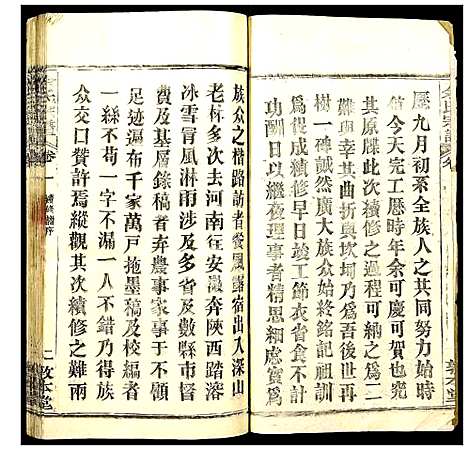 曆九月初系全族人之共同努力始時
節今天完工曆時年余可慶可賀也究
其原歸此次續修之過程可納之為二
難與幸其曲折與坎坷乃為吾後世再
樹一碑誠然廣大族众始終銘記祖訓
為促成續修早日竣工節衣省食不計
功酬日以繼夜理事者精思細慮實為
族众之楷路訪者餐風露宿出入深山
老林多次去河南往安嶶奔陝西踏溶
冰雪冐風淋雨涉及多省及數県經
費及基層錄稿者弃農事家事于不顧
足迹遍布千家萬戶拖墨稿及校編者
一絲不苟一字不漏一人不錯乃得族
众交口賛許焉縱觀其次續修之難雨
卷一
續修譜序
二
敦本堂